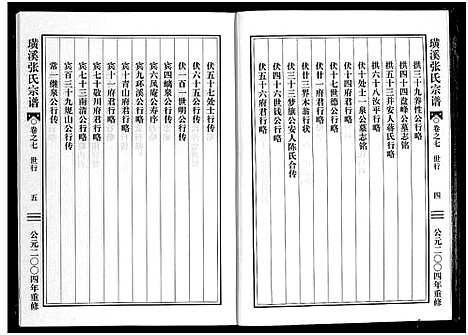 璜溪张氏宗谱
卷之七 世行
四
公元二〇〇四年重修
拱三十九养性公行略
拱四十四盘峰公墓志铭
拱五十三并安人蒋氏行略
拱六十八汝平行略
伏十处士一泉公墓志铭
伏廿一府君行略
伏廿二界木翁行状
伏三十三梦旗公安人陈氏合传
伏四十六世钱公行略
伏五十六府君行略
伏五十七处士行传
伏六十五公行传
伏一百一世明公行传
宾四績泉公合传
宾六凤庵公寿序
宾九环溪公行略
宾十青山府君行略
宾十一府君行略
宾七十敬川府君行略
宾七十三南洁公行略
宾百三十九砚山公行传
常一继泉公行传
璜溪张氏宗谱
卷之七 世行
五
公元二〇〇四年重修